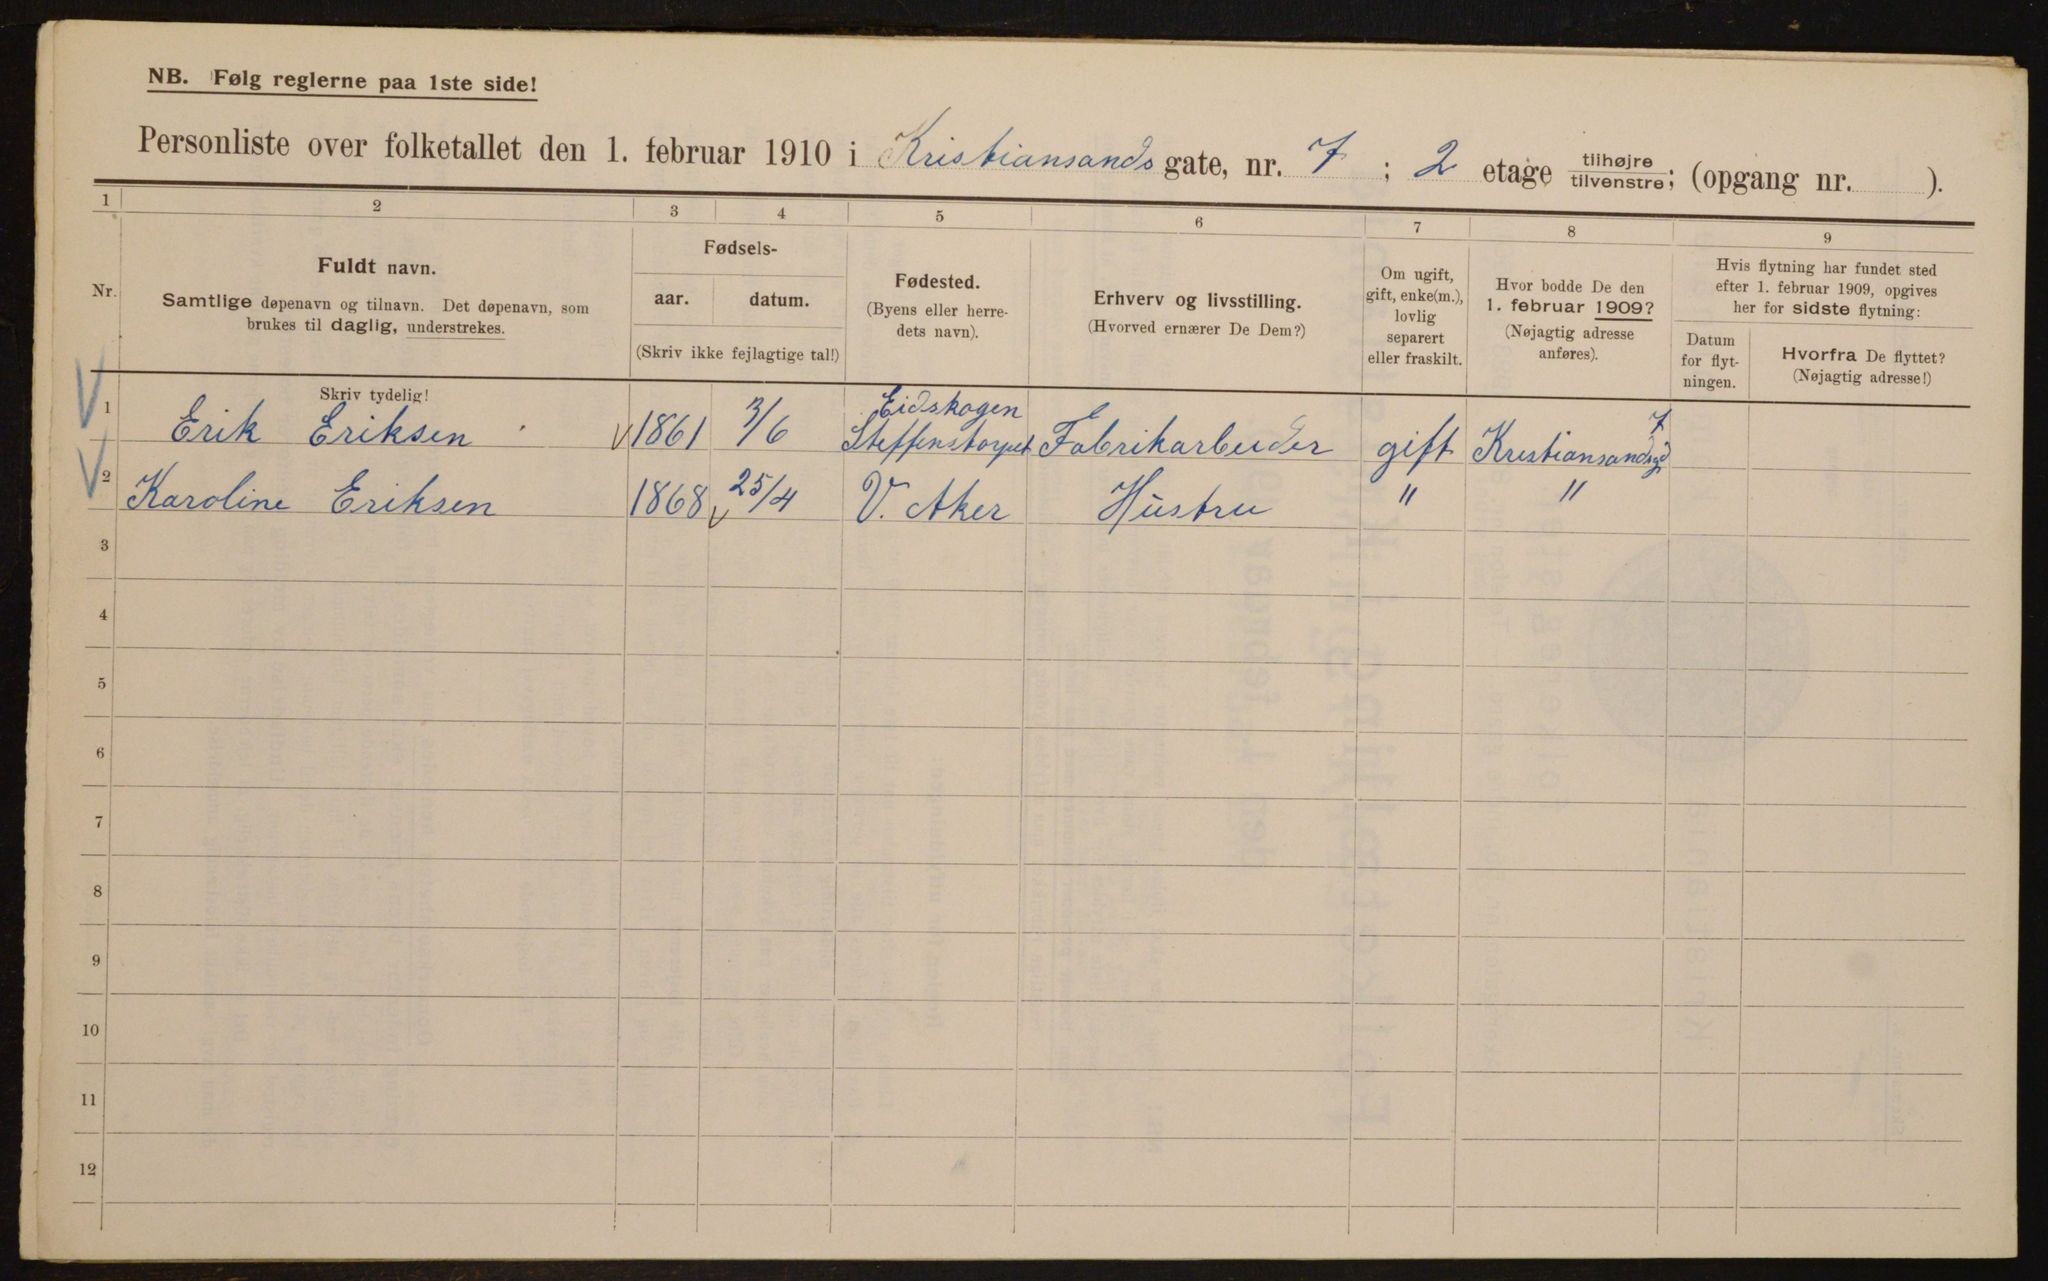 NB. Følg reglerne paa 1ste side!
Personliste over folketallet den 1. februar 1910 i Kristiansands gate, nr. 7 ; 2 etage tilhøjre tilvenstre; (opgang nr. ).
1 2 3 4 5 6 7 8 9
Nr.
Fuldt navn.
Samtlige døpenavn og tilnavn. Det døpenavn, som
brukes til daglig, understrekes.
Skriv tydelig!
Fødsels-
aar. datum.
(Skriv ikke fejlagtige tal!)
Fødested.
(Byens eller herre-
dets navn).
Erhverv og livsstilling.
(Hvorved ernærer De Dem?)
Om ugift,
gift, enke(m.),
lovlig
separert
eller fraskilt.
Hvor bodde De den
1. februar 1909?
(Nøjagtig adresse
anføres).
Hvis flytning har fundet sted
efter 1. februar 1909, opgives
her for sidste flytning:
Datum
for flyt-
ningen.
Hvorfra De flyttet?
(Nøjagtig adresse!)
1 Erik Eriksen 1861 3/6 Eidskogen Fabrikarbeider gift Kristiansandsgd 7
2 Karoline Eriksen 1868 25/4 V. Aker Hustru " "
3
4
5
6
7
8
9
10
11
12